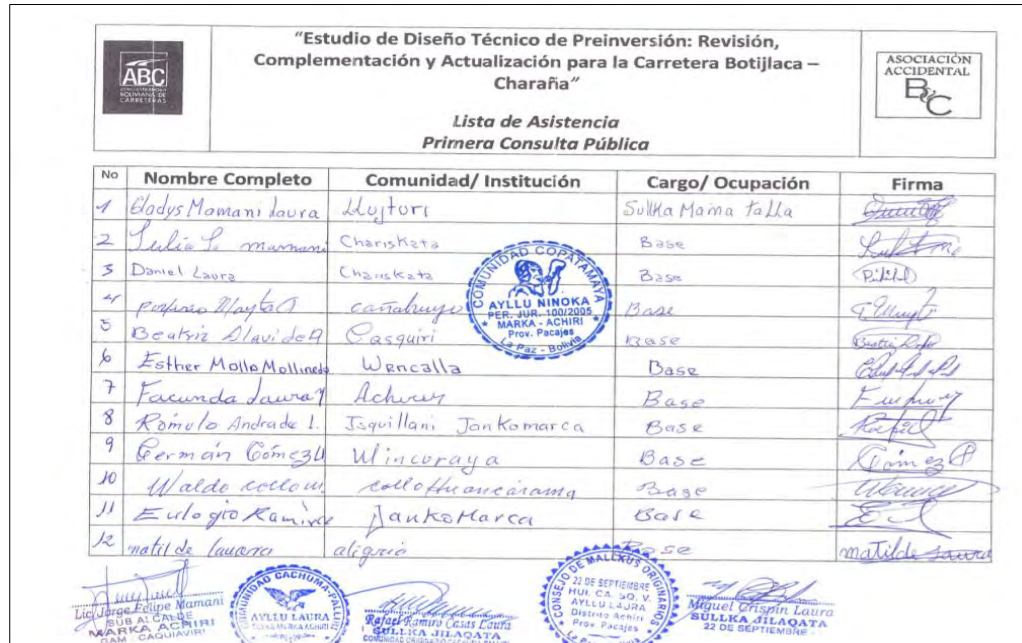 ABC
ADMINISTRADORA
BOLIVIANA DE
CARRETERAS
"Estudio de Diseño Técnico de Preinversión: Revisión,
Complementación y Actualización para la Carretera Botijlaca –
Charaña"
Lista de Asistencia
Primera Consulta Pública
ASOCIACIÓN
ACCIDENTAL
B&C
No Nombre Completo Comunidad/ Institución Cargo/ Ocupación Firma
1 Gladys Mamani Laura Llujturi Sullka Mama Talla
2 Julia L. mamani Chariskata Base
3 Daniel Laura Chariskata Base
4 porfirio Mayta cañahuyo Base
5 Beatriz Alavi de A Casquiri Base Beatriz
6 Esther Mollo Mollinedo Wencalla Base
7 Facunda Laura Achiri Base
8 Rómulo Andrade L. Isquillani Jankomarca Base
9 Germán Gómez U Wincuraya Base Gómez
10 Waldo collo collo huancarama Base
11 Eulogio Ramirez JankoMarca Base
12 matilde lauara aligria Base matilde Laura
COMUNIDAD COPATAMAYA
AYLLU NINOKA
PER. JUR. 100/2005
MARKA - ACHIRI
Prov. Pacajes
La Paz - Bolivia
Lic. Jorge Felipe Mamani
SUB ALCALDE
MARKA ACHIRI
GAM - CAQUIAVIRI
COMUNIDAD CACHUMA-PALLI
AYLLU LAURA
Rafael Ramiro Casas Laura
SULLKA JILAQATA
CONSEJO DE MALLKUS ORIGINARIOS
22 DE SEPTIEMBRE
HUI. CA. SQ. V.
AYLLU LAURA
Distrito Achiri
Prov. Pacajes
La Paz
Miguel Crispin Laura
SULLKA JILAQATA
22 DE SEPTIEMBRE